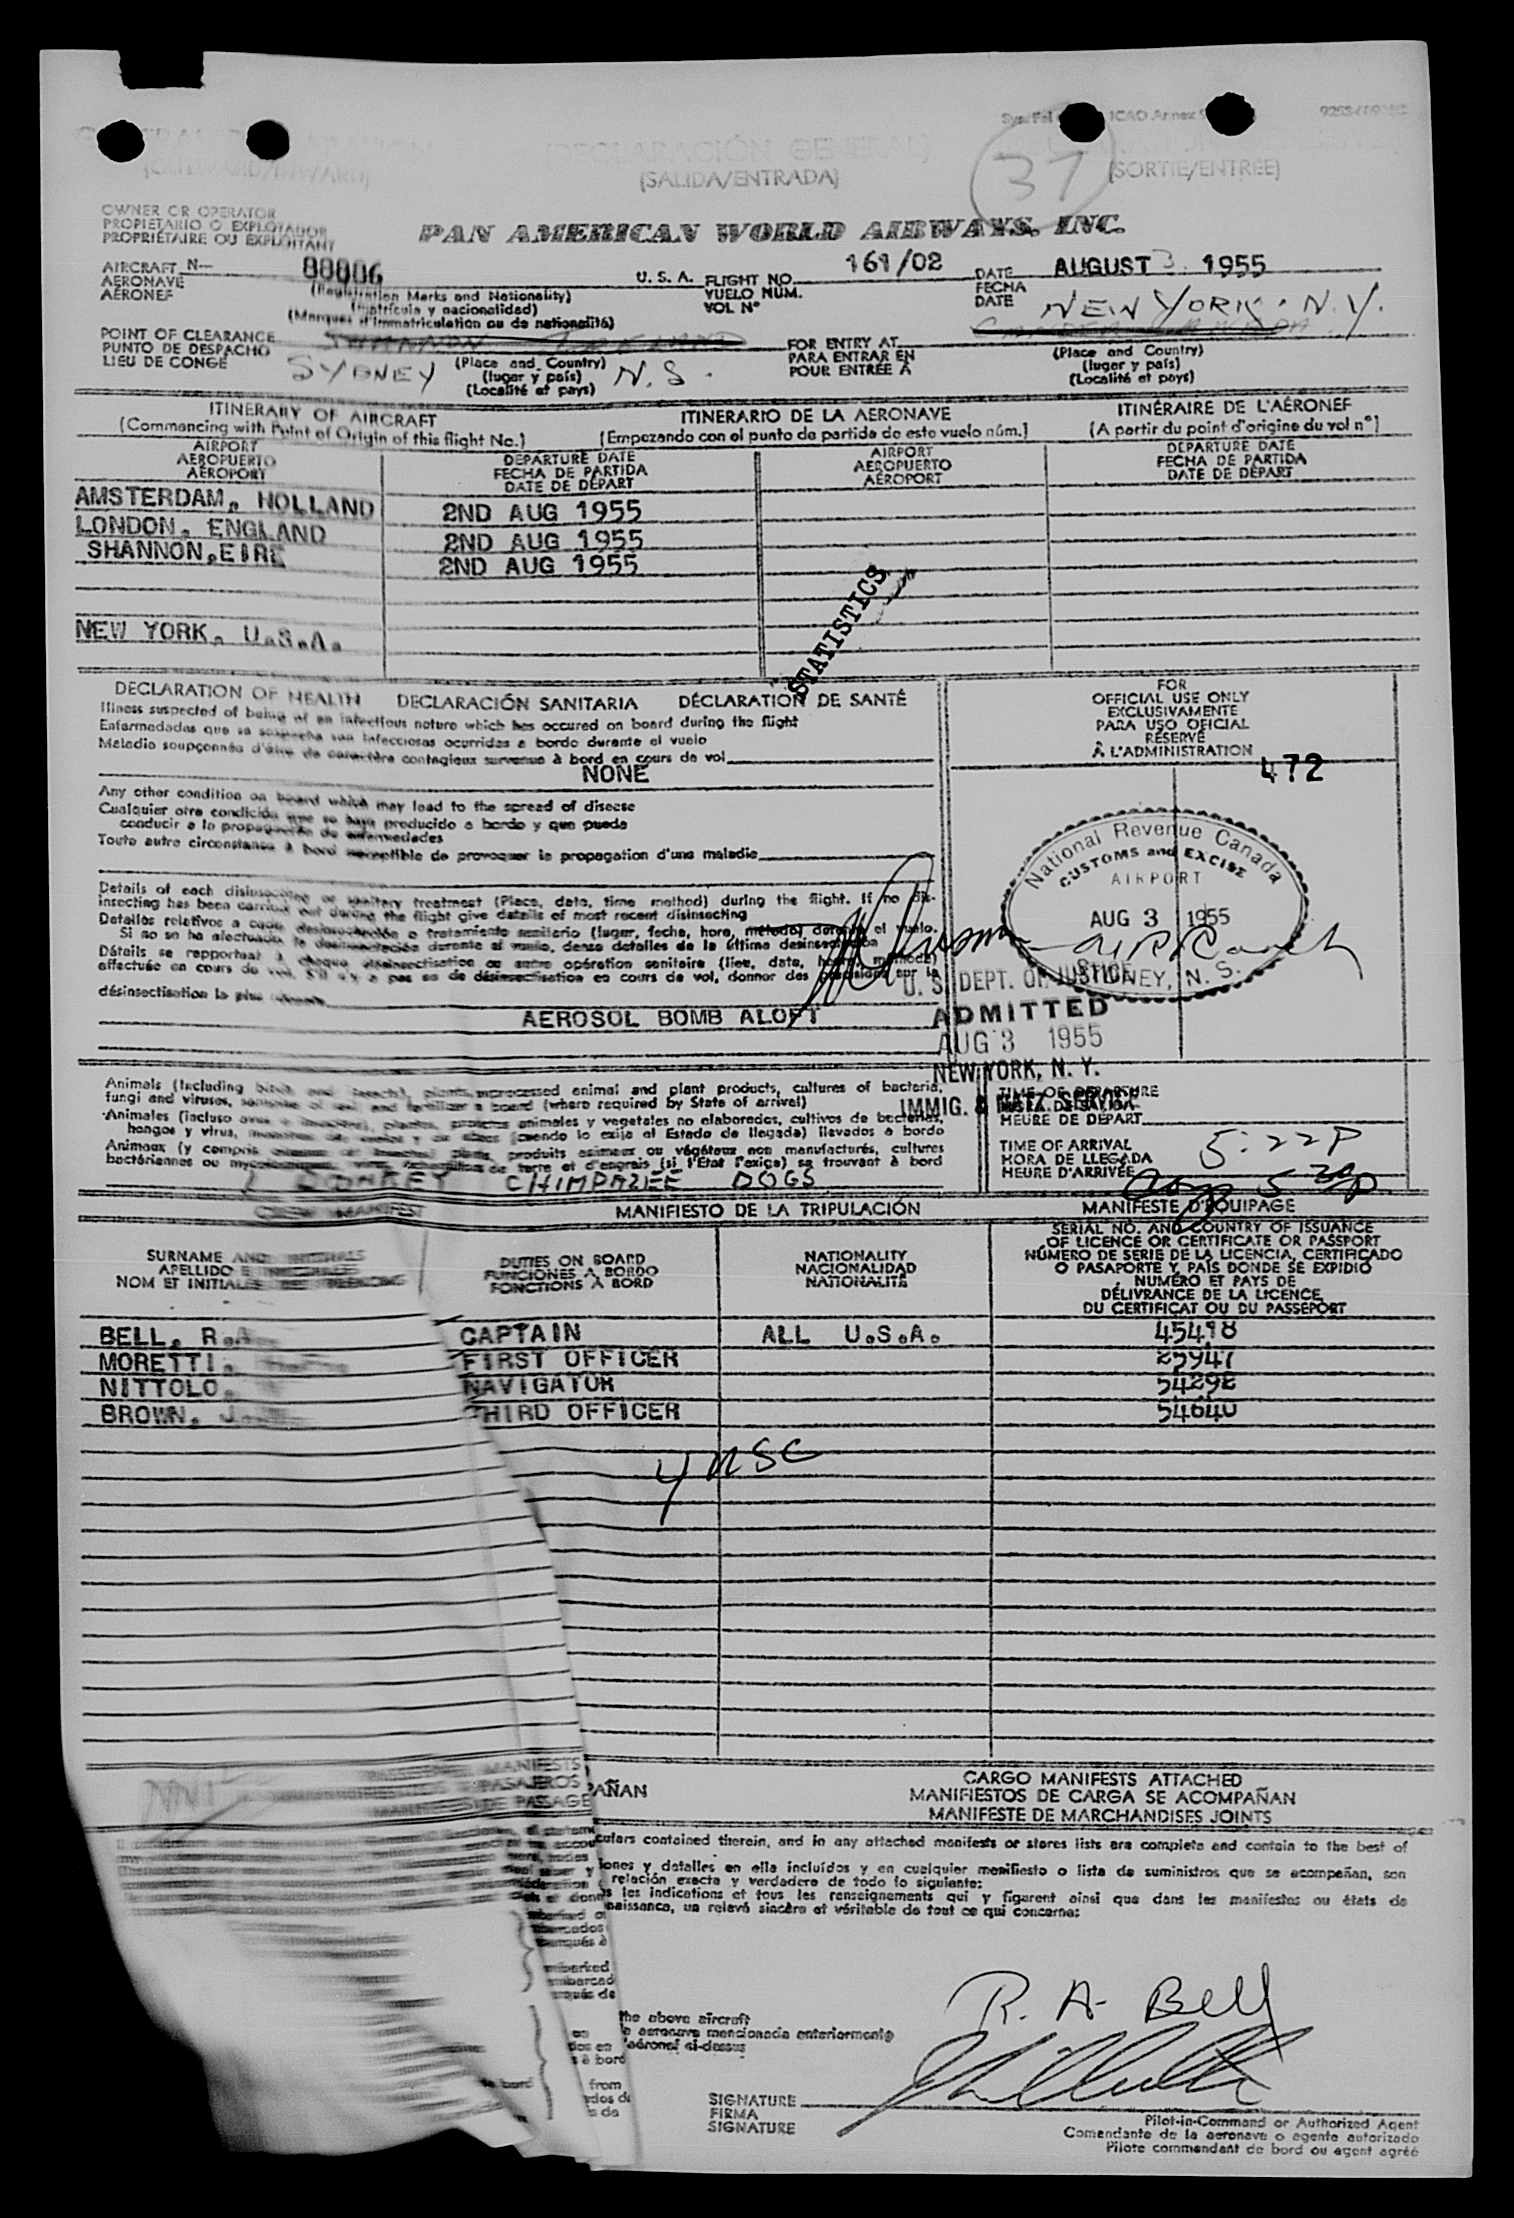 ICAO Annex
(SALIDA/ENTRADA)
37
(SORTIE/ENTRÉE)
OWNER OR OPERATOR
PROPIETARIO O EXPLOTADOR
PROPRIÉTAIRE OU EXPLOITANT
PAN AMERICAN WORLD AIRWAYS, INC.
AIRCRAFT N—
AERONAVE
AÉRONEF
(Registration Marks and Nationality)
(matrícula y nacionalidad)
(Marques d'immatriculation ou de nationalité)
U. S. A.
FLIGHT NO.
VUELO NÚM.
VOL Nº
161/02
DATE
FECHA
DATE
AUGUST 3 1955
NEW YORK, N. Y.
POINT OF CLEARANCE
PUNTO DE DESPACHO
LIEU DE CONGÉ
SHANNON
SYDNEY N. S.
(Place and Country)
(lugar y país)
(Localité et pays)
FOR ENTRY AT
PARA ENTRAR EN
POUR ENTRÉE À
(Place and Country)
(lugar y país)
(Localité et pays)
ITINERARY OF AIRCRAFT ITINERARIO DE LA AERONAVE ITINÉRAIRE DE L'AÉRONEF
(Commencing with Point of Origin of this flight No.) (Empezando con el punto de partida de este vuelo núm.) (A partir du point d'origine du vol nº)
AIRPORT
AEROPUERTO
AÉROPORT
DEPARTURE DATE
FECHA DE PARTIDA
DATE DE DÉPART
AIRPORT
AEROPUERTO
AÉROPORT
DEPARTURE DATE
FECHA DE PARTIDA
DATE DE DÉPART
AMSTERDAM, HOLLAND 2ND AUG 1955
LONDON, ENGLAND 2ND AUG 1955
SHANNON, EIRE 2ND AUG 1955
NEW YORK, U.S.A.
STATISTICS
DECLARATION OF HEALTH DECLARACIÓN SANITARIA DÉCLARATION DE SANTÉ
Illness suspected of being of an infectious nature which has occured on board during the flight
Enfermedades que se sospecha son infecciosas ocurridas a bordo durante el vuelo
Maladie soupçonnée d'être de caractère contagieux survenue à bord en cours de vol
NONE
Any other condition on board which may lead to the spread of disease
Cualquier otra condición que se haya producido a bordo y que pueda
conducir a la propagación de enfermedades
Toute autre circonstance à bord susceptible de provoquer la propagation d'une maladie
Details of each disinsecting or sanitary treatment (Place, date, time method) during the flight. If no dis-
insecting has been carried out during the flight give details of most recent disinsecting
Detalles relativos a cada desinsectación o tratamiento sanitario (lugar, fecha, hora, método) durante el vuelo.
Si no se ha efectuado la desinsectación durante el vuelo, dense detalles de la última desinsectación
Détails se rapportant à chaque désinsectisation ou autre opération sanitaire (lieu, date, heure, méthode)
effectuée en cours de vol. S'il n'y a pas eu de désinsectisation en cours de vol, donner des précisions sur la
désinsectisation la plus récente
AEROSOL BOMB ALOFT
FOR
OFFICIAL USE ONLY
EXCLUSIVAMENTE
PARA USO OFICIAL
RÉSERVÉ
À L'ADMINISTRATION
472
National Revenue Canada
CUSTOMS and EXCISE
AIRPORT
AUG 3 1955
SYDNEY, N. S.
U. S. DEPT. OF JUSTICE
ADMITTED
AUG 3 1955
NEW YORK, N. Y.
IMMIG. & NATZ. SERVICE
Animals (Including birds and insects), plants, unprocessed animal and plant products, cultures of bacteria,
fungi and viruses, samples of soil and fertilizer a board (where required by State of arrival)
Animales (incluso aves e insectos), plantas, productos animales y vegetales no elaborados, cultivos de bacterias,
hongos y virus, muestras de suelos y de abono (cuando lo exija el Estado de llegada) llevados a bordo
Animaux (y compris oiseaux et insectes) plants, produits animaux ou végétaux non manufacturés, cultures
bactériennes ou mycologiques, virus, échantillons de terre et d'engrais (si l'État l'exige) se trouvant à bord
DONKEY CHIMPAZEE DOGS
TIME OF DEPARTURE
HORA DE SALIDA
HEURE DE DÉPART
TIME OF ARRIVAL
HORA DE LLEGADA
HEURE D'ARRIVÉE
5:22P
CREW MANIFEST MANIFIESTO DE LA TRIPULACIÓN MANIFESTE D'ÉQUIPAGE
SURNAME AND INITIALS
APELLIDO E INICIALES
NOM ET INITIALES DES PRÉNOMS
DUTIES ON BOARD
FUNCIONES A BORDO
FONCTIONS À BORD
NATIONALITY
NACIONALIDAD
NATIONALITÉ
SERIAL NO. AND COUNTRY OF ISSUANCE
OF LICENCE OR CERTIFICATE OR PASSPORT
NÚMERO DE SERIE DE LA LICENCIA, CERTIFICADO
O PASAPORTE Y PAÍS DONDE SE EXPIDIÓ
NUMÉRO ET PAYS DE
DÉLIVRANCE DE LA LICENCE,
DU CERTIFICAT OU DU PASSEPORT
BELL, R.A. CAPTAIN ALL U.S.A. 45498
MORETTI, FIRST OFFICER 25947
NITTOLO, NAVIGATOR 54292
BROWN, J. THIRD OFFICER 54640
4 USC
MANIFESTS
PASAJEROS PAÑAN
DE PASSAGE
CARGO MANIFESTS ATTACHED
MANIFIESTOS DE CARGA SE ACOMPAÑAN
MANIFESTE DE MARCHANDISES JOINTS
culars contained therein, and in any attached manifests or stores lists are complete and contain to the best of
iones y detalles en ella incluídos y en cualquier manifiesto o lista de suministros que se acompañan, son
relación exacta y verdadera de todo lo siguiente:
s les indications et tous les renseignements qui y figurent ainsi que dans les manifestes ou états de
naissance, un relevé sincère et véritable de tout ce qui concerne:
the above aircraft
a aeronave mencionada anteriormente
l'aéronef ci-dessus
from
R. A. Bell
SIGNATURE
FIRMA
SIGNATURE
Pilot-in-Command or Authorized Agent
Comandante de la aeronave o agente autorizado
Pilote commandant de bord ou agent agréé